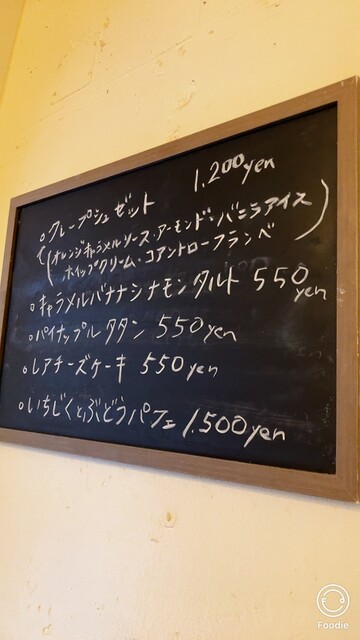 ○クレープシュゼット 1,200yen
(オレンジキャラメルソース・アーモンド・バニラアイス
ホイップクリーム・コアントローフランベ)
○キャラメルバナナシナモンタルト 550yen
○パイナップルタタン 550yen
○レアチーズケーキ 550yen
○いちじくとぶどうパフェ 1,500yen
Foodie